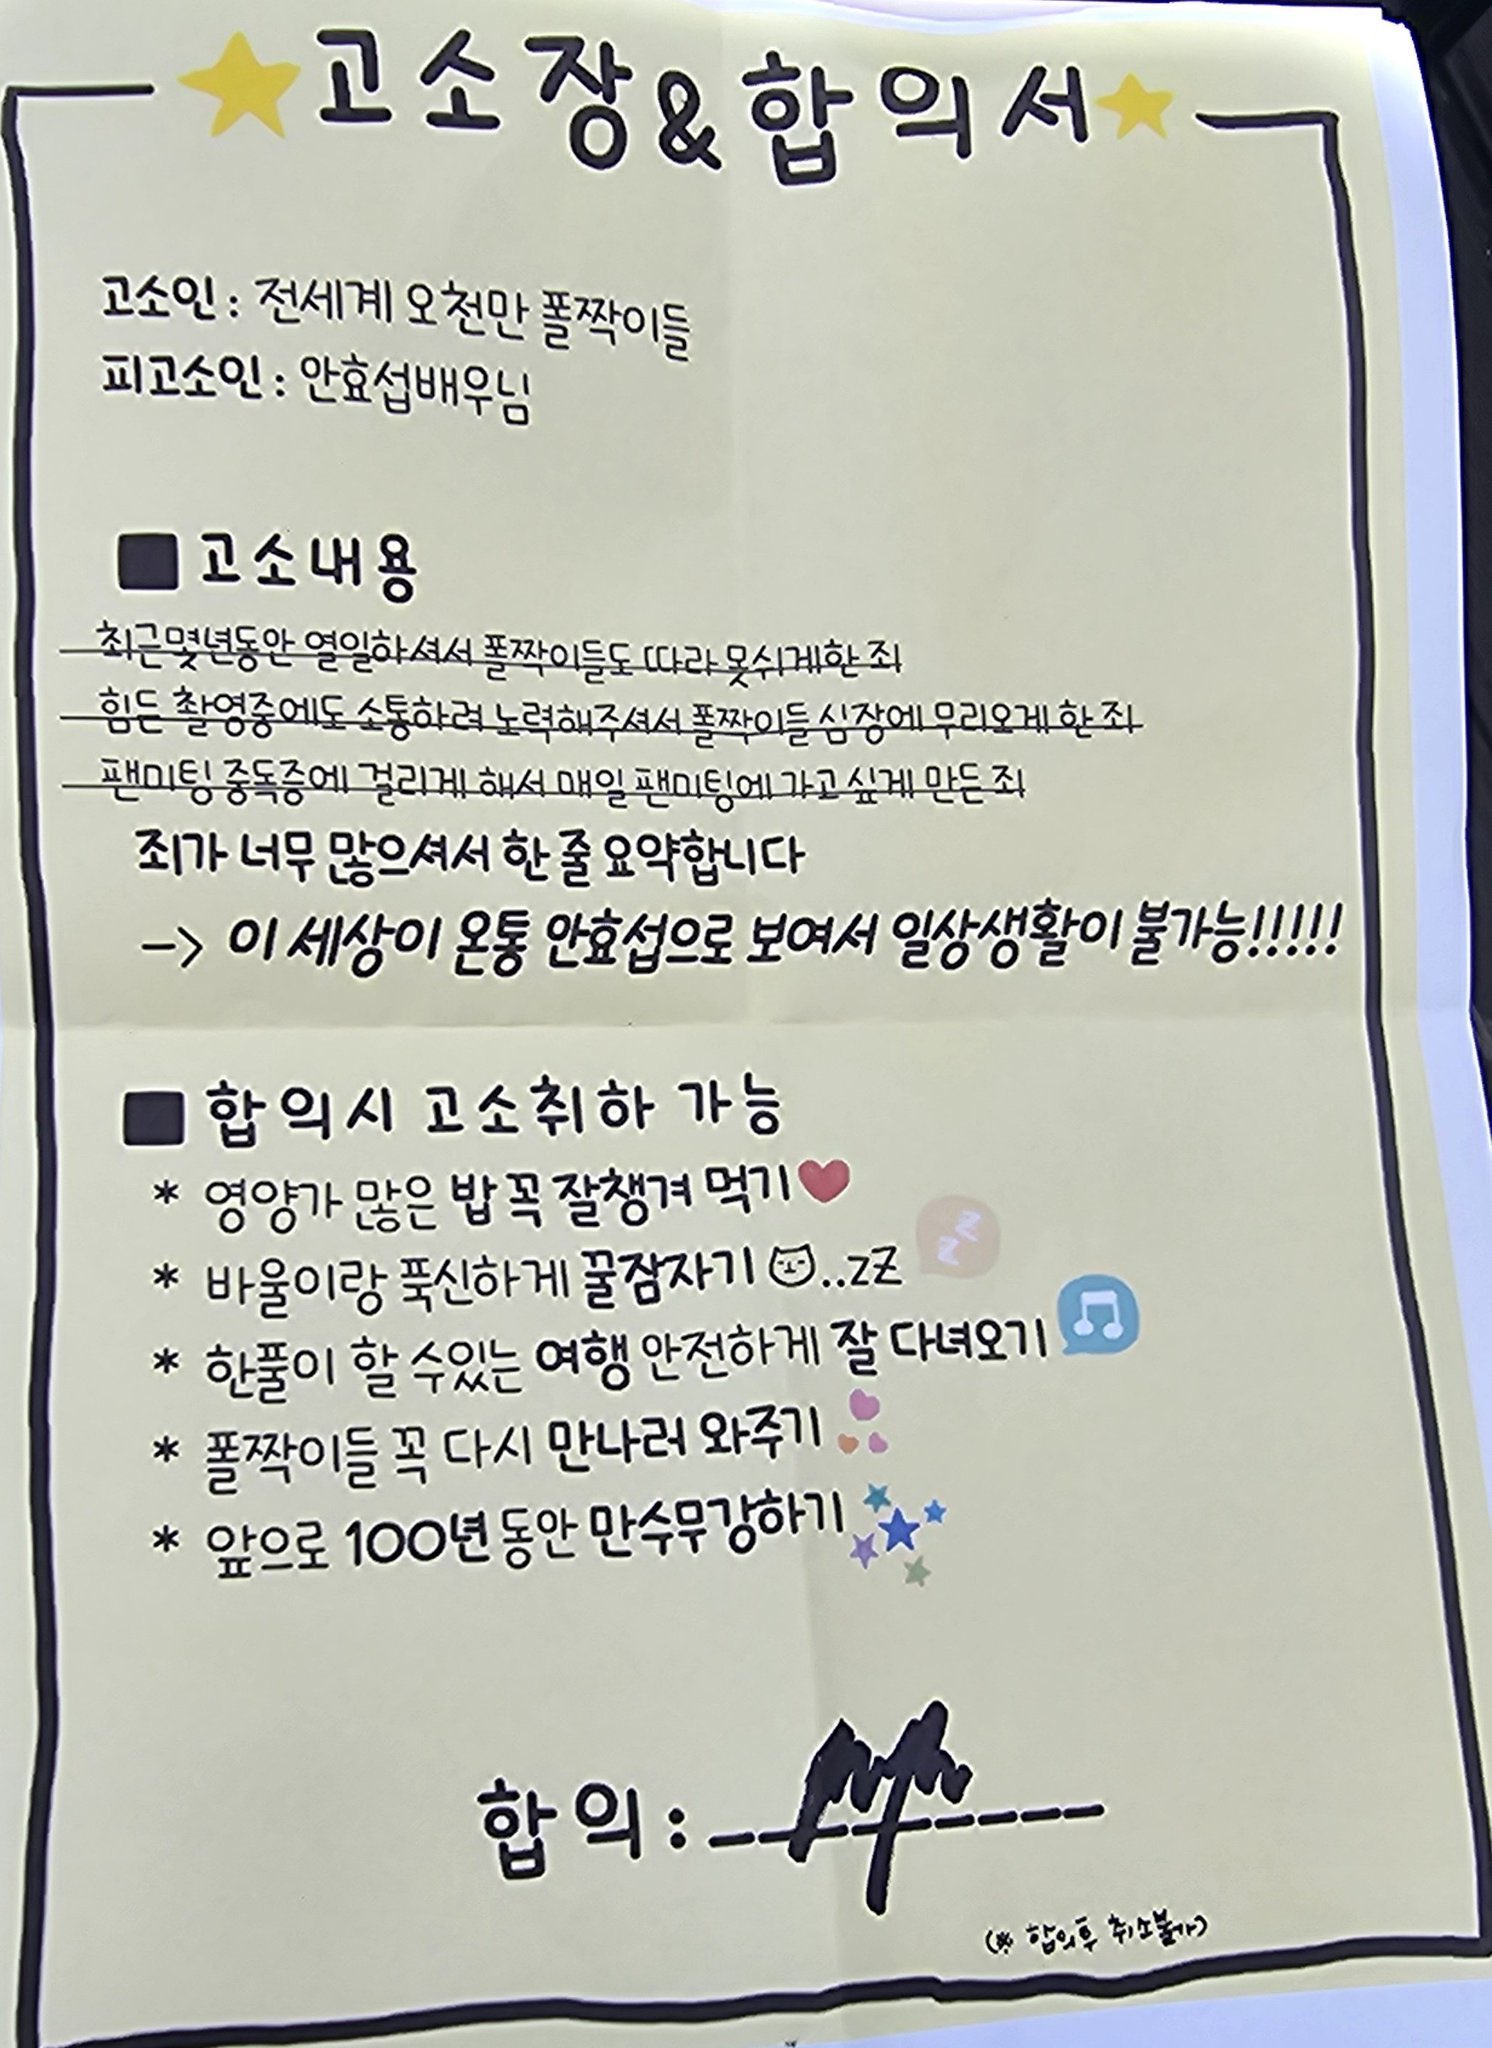 고소장&합의서
고소인 : 전세계 오천만 폴짝이들
피고소인 : 안효섭배우님
■ 고소내용
최근몇년동안 열일하셔서 폴짝이들도 따라 못쉬게한 죄
힘든 촬영중에도 소통하려 노력해주셔서 폴짝이들 심장에 무리오게 한 죄
팬미팅 중독증에 걸리게 해서 매일 팬미팅에 가고 싶게 만든 죄
죄가 너무 많으셔서 한 줄 요약합니다
-> 이 세상이 온통 안효섭으로 보여서 일상생활이 불가능!!!!!
■ 합의시 고소취하 가능
* 영양가 많은 밥 꼭 잘챙겨 먹기
* 바울이랑 푹신하게 꿀잠자기 ..zZ
* 한풀이 할 수있는 여행 안전하게 잘 다녀오기
* 폴짝이들 꼭 다시 만나러 와주기
* 앞으로 100년 동안 만수무강하기
합의 :
(※ 합의후 취소불가)